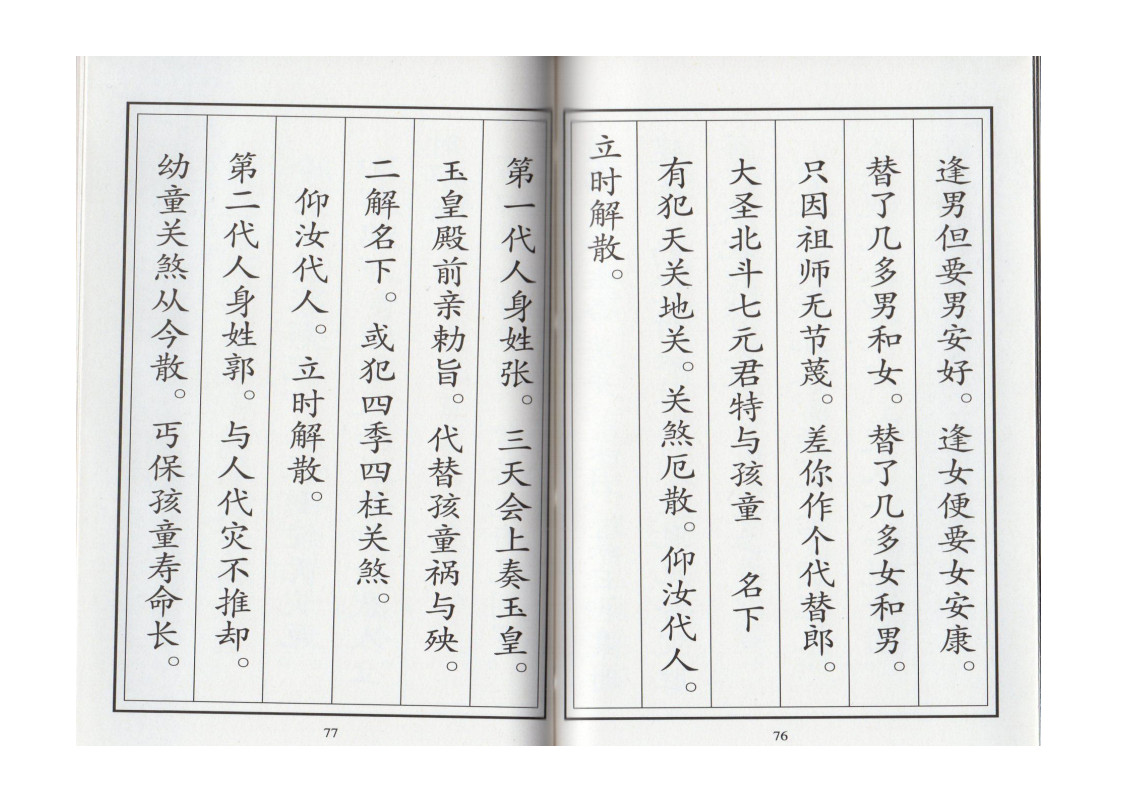 逢男但要男安好。逢女便要女安康。
替了几多男和女。替了几多女和男。
只因祖师无节蔑。差你作个代替郎。
大圣北斗七元君特与孩童　名下
有犯天关地关。关煞厄散。仰汝代人。
立时解散。
76
第一代人身姓张。三天会上奏玉皇。
玉皇殿前亲勅旨。代替孩童祸与殃。
二解名下。或犯四季四柱关煞。
仰汝代人。立时解散。
第二代人身姓郭。与人代灾不推却。
幼童关煞从今散。丐保孩童寿命长。
77